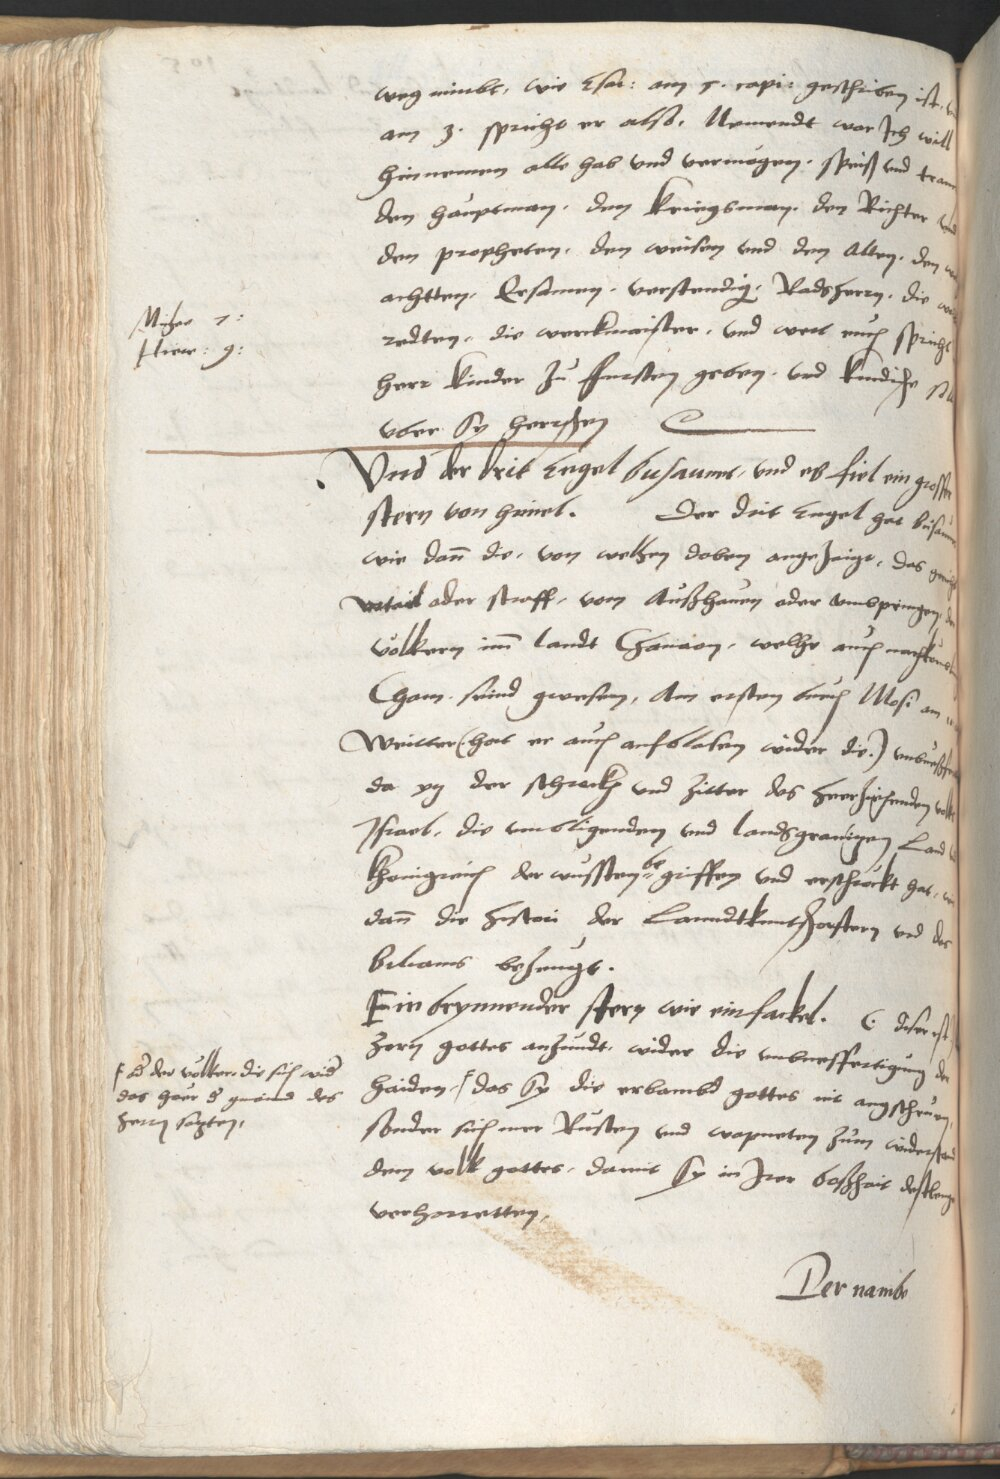 weg nimbt, wie Esai: am 5. capi: geschriben ist,
am 3. spricht er also. Nemendt war Ich will
hinnemen alle hab und vermögen, speiß und tran
den hauptman, den kriegsman, den Richter und
den propheten, den weisen und den Alten, den
achtten, Ersamen, verstendig, Radsherrn, die
redten, die werckmaister, und wert euch spricht
herr kinder zu fursten geben, und kindische
uber sy herrschen
Michee 7:
Hiere: 9:
Und der drit Engel busaunet, und es fiel ein grosser
stern von himel. Der drit Engel hat busaun
wie dann die, von welchen doben angezaigt, das gericht
urtail oder straff, vom Außhauen oder umbpringen, der
völkern im landt Chanaan, welche auch nachkom
Cham seind gwesen, Am ersten buch Mosi am
Weitter (hat er auch anfblasen wider die)
da yn der schreckh und zitter des heerziehenden volks
Israel, die umbligenden und landsgrenigen Land
khonigreich der wussten be griffen und erschreckt hat, wie
dann die histori der Lanndtkuntschafftern und des
biliams bezeugt.
Ein brynnender stern wie ein fackel. diser ist
zorn gottes anzundt, wider die unbuessfertigung der
haiden, das sy die erbarmbd gottes nit angschruen,
sonder sich mer Rusten und wapneten zum widerstand
dem volk gottes, damit sy in Irer boßhait destlenger
verharretten,
der völker, die sich wider
das heer gmaind des
herrn satzten,
Der namb